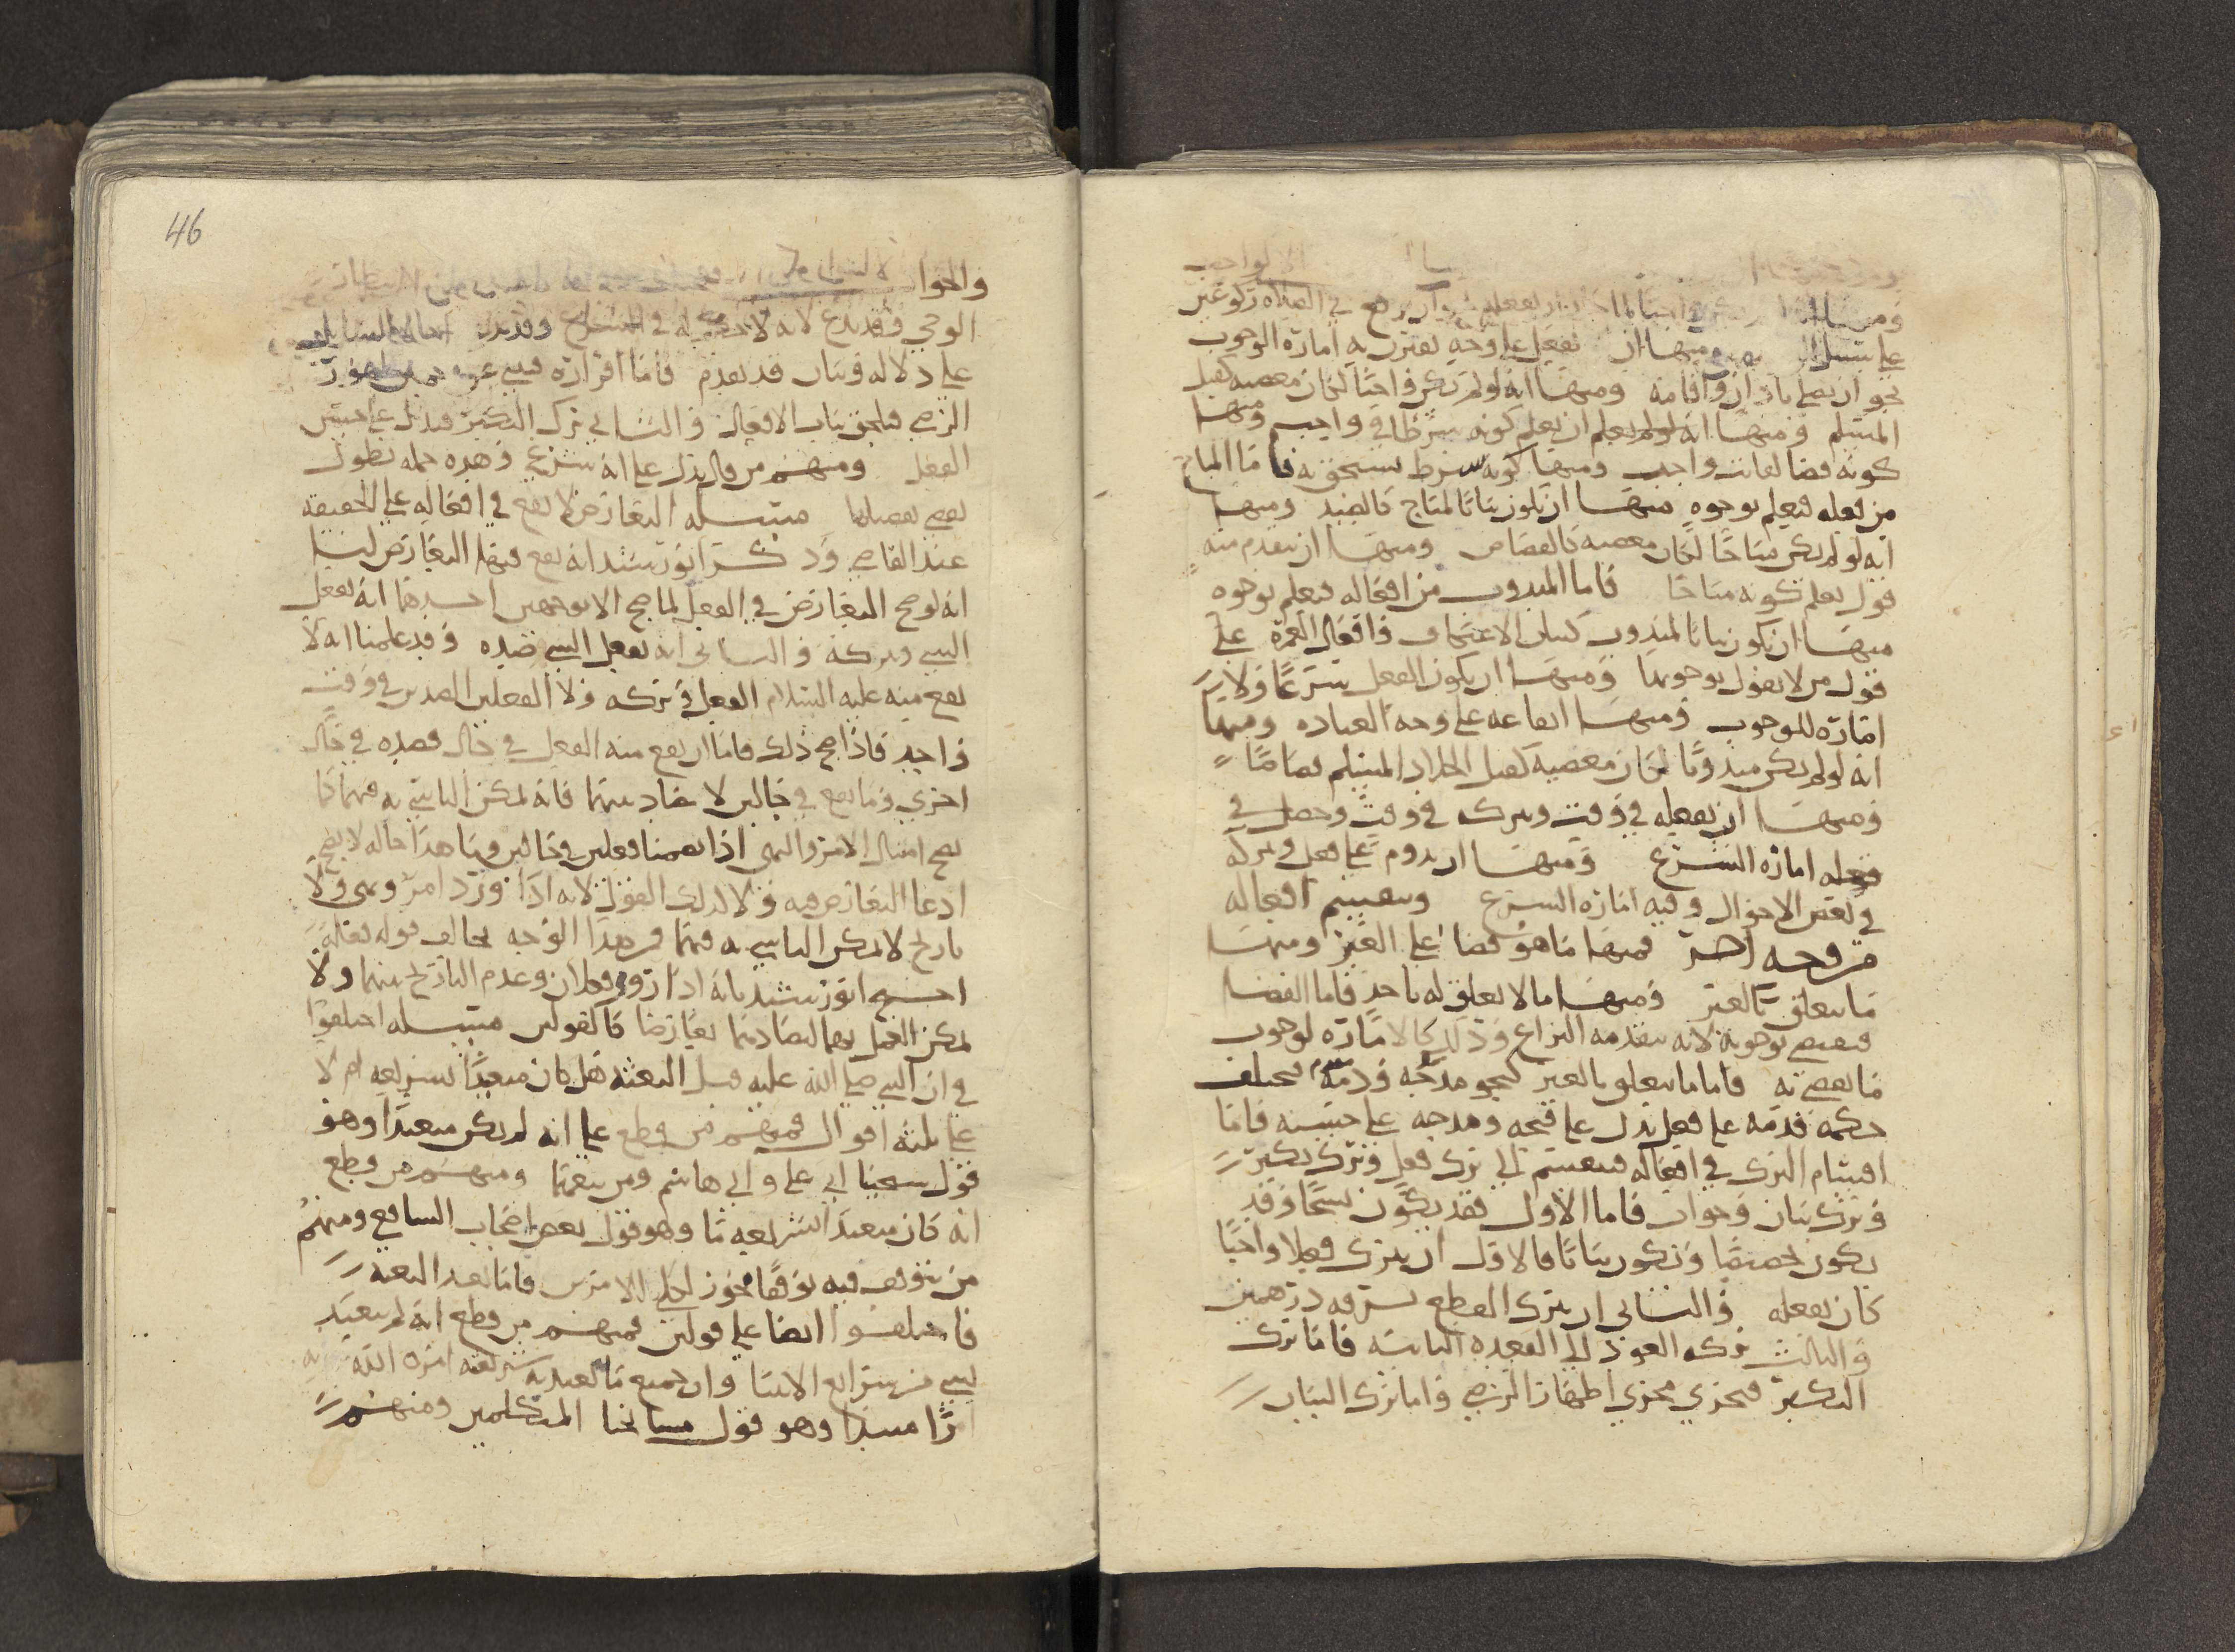 الواجب
ومنها ان يكون واجبا لما جاز ان يفعله نحو ان يركع في الصلاة ركوعين
على سبيل ومنها ان يفعل على وجه يقترن به امارة الوجوب
نحو ان يصلي باذان واقامة ومنها انه لو لم يكن واجبا لكان معصية كقتل
المسلم ومنها انه لو لم يعلم ان يعلم كونه شرطا في واجب ومنها
كونه قضا لفائت واجب ومنها كونه شرط يستحق به فاما المباح
من فعله فيعلم بوجوه منها ان يكون بيانا لمباح كالصيد ومنها
انه لو لم يكن مباحا لكان معصية كالقصاص ومنها ان يتقدم منه
قول يعلم كونه مباحا فاما المندوب من افعاله فيعلم بوجوه
منها ان يكون بيانا لمندوب كبيان الاعتكاف وافعال العمرة على
قول من لا يقول بوجوبها ومنها ان يكون الفعل شرعا ولا يتم
امارة للوجوب ومنها ايقاعه على وجه العبادة ومنها
انه لو لم يكن مندوبا لكان معصية كقتل الجلاد المسلم قصاصا
ومنها ان يفعله في وقت ويترك في وقت وحصل في
فعله امارة الشرع ومنها ان يدوم على فعل وتركه
في بعض الاحوال وفيه امارة الشرع وتنقسم افعاله
من وجه اخر فمنها ما هو قضا على الغير ومنها
ما يتعلق بالغير ومنها ما لا يعلق له باحد فاما القضا
فيقضي بوجوبه لانه يتقدمه النزاع وذلك كالامارة لوجوب
ما يقضي به فاما ما يتعلق بالغير نحو مدحه وذمه فيختلف
حكمه فذمه على فعل يدل على قبحه ومدحه على حسنه فاما
اقسام الترك في افعاله فينقسم الى ترك فعل وترك نكير
وترك بيان وجواب فاما الاول فقد يكون نسخا وقد
يكون تخصيصا ويكون بيانا فالاول ان يترك فعلا واجبا
كان يفعله والثاني ان يترك القطع بسرقه درهمين
والثالث تركه العود الى القعدة الثانية فاما ترك
النكير فيجري مجرى اظهار الرضى واما ترك البيان
46
والجوا
الوحي وقد يدع لانه لا حكم له في الشرع وقد يدع احالة للسائل
على دلالة وبيان قد تقدم فاما اقراره
الرضى فيلحق بباب الافعال والثاني ترك النكير فيدل على حسن
الفعل ومنهم من قال يدل على انه شرع وهذه جملة يطول
بعض تفصيلها مسئلة التعارض لا يقع في افعاله على الحقيقة
عند القاضي وذكر ابو رشيد انه يقع فيها التعارض لنا
انه لو صح التعارض في الفعل لما صح الا بوجهين احدهما انه يفعل
الشي ويتركه والثاني انه يفعل الشي وضده وقد علمنا انه لا
يقع منه عليه السلام الفعل وتركه ولا الفعلين الضدين في وقت
واحد فاذا صح ذلك فاما ان يقع منه الفعل في حال وضده في حال
اخرى وما يقع في حالين لا تضاد بينهما فانه يمكن التاسي به فيهما كما
يصح امتثال الامر والنهي اذا تضمنا فعلين في حالين وما هذا حاله لا يصح
ادعا التعارض فيه ولا كذلك القول لانه اذا ورد امر ونهي ولا
تاريخ لا يمكن التاسي به فيهما فمن هذا الوجه يخالف قوله فعاله
احتج ابو رشيد بانه اذا روي فعلان وعدم التاريخ بينهما ولا
يمكن العمل بهما لتضادهما تعارضا كالقولين مسئلة اختلفوا
في ان النبي صلى الله عليه قبل البعثة هل كان متعبدا بشريعة ام لا
على ثلثة اقوال فمنهم من قطع على انه لم يكن متعبدا وهو
قول شيخنا ابي علي وابي هاشم ومن تبعهما ومنهم من قطع
انه كان متعبدا بشريعة ما وهو قول بعض اصحاب الشافعي ومنهم
من توقف فيه توقفا مجوز لكلى الامرين فاما بعد البعثة
فاختلفوا ايضا على قولين فمنهم من قطع انه لم يتعبد
بشي من شرايع الانبيا وان جميع ما تعبد به شريعة امره الله
امرا مبتدا وهو قول مشايخنا المتكلمين ومنهم